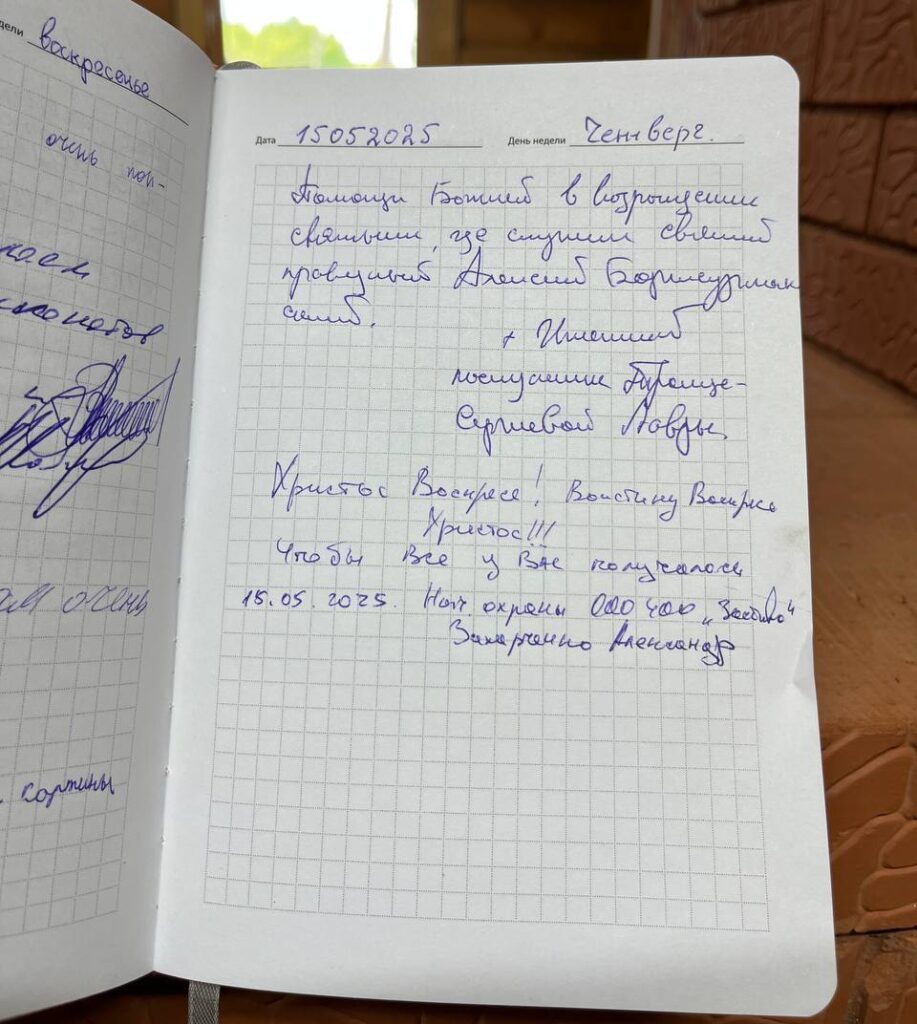 дели воскресенье
очень пон-
очень
картины
Дата 15052025 День недели Четверг.
Помощи Божией в возрождении
святыни, где служил святой
праведный Алексий Бортсурман
ский.
+
послушник Троице-
Сергиевой Лавры
Христос Воскресе! Воистину Воскресе
Христос!!!
Чтобы все у Вас получалось
15.05.2025. Нач. охраны ООО ЧОО
Захарченко Александр